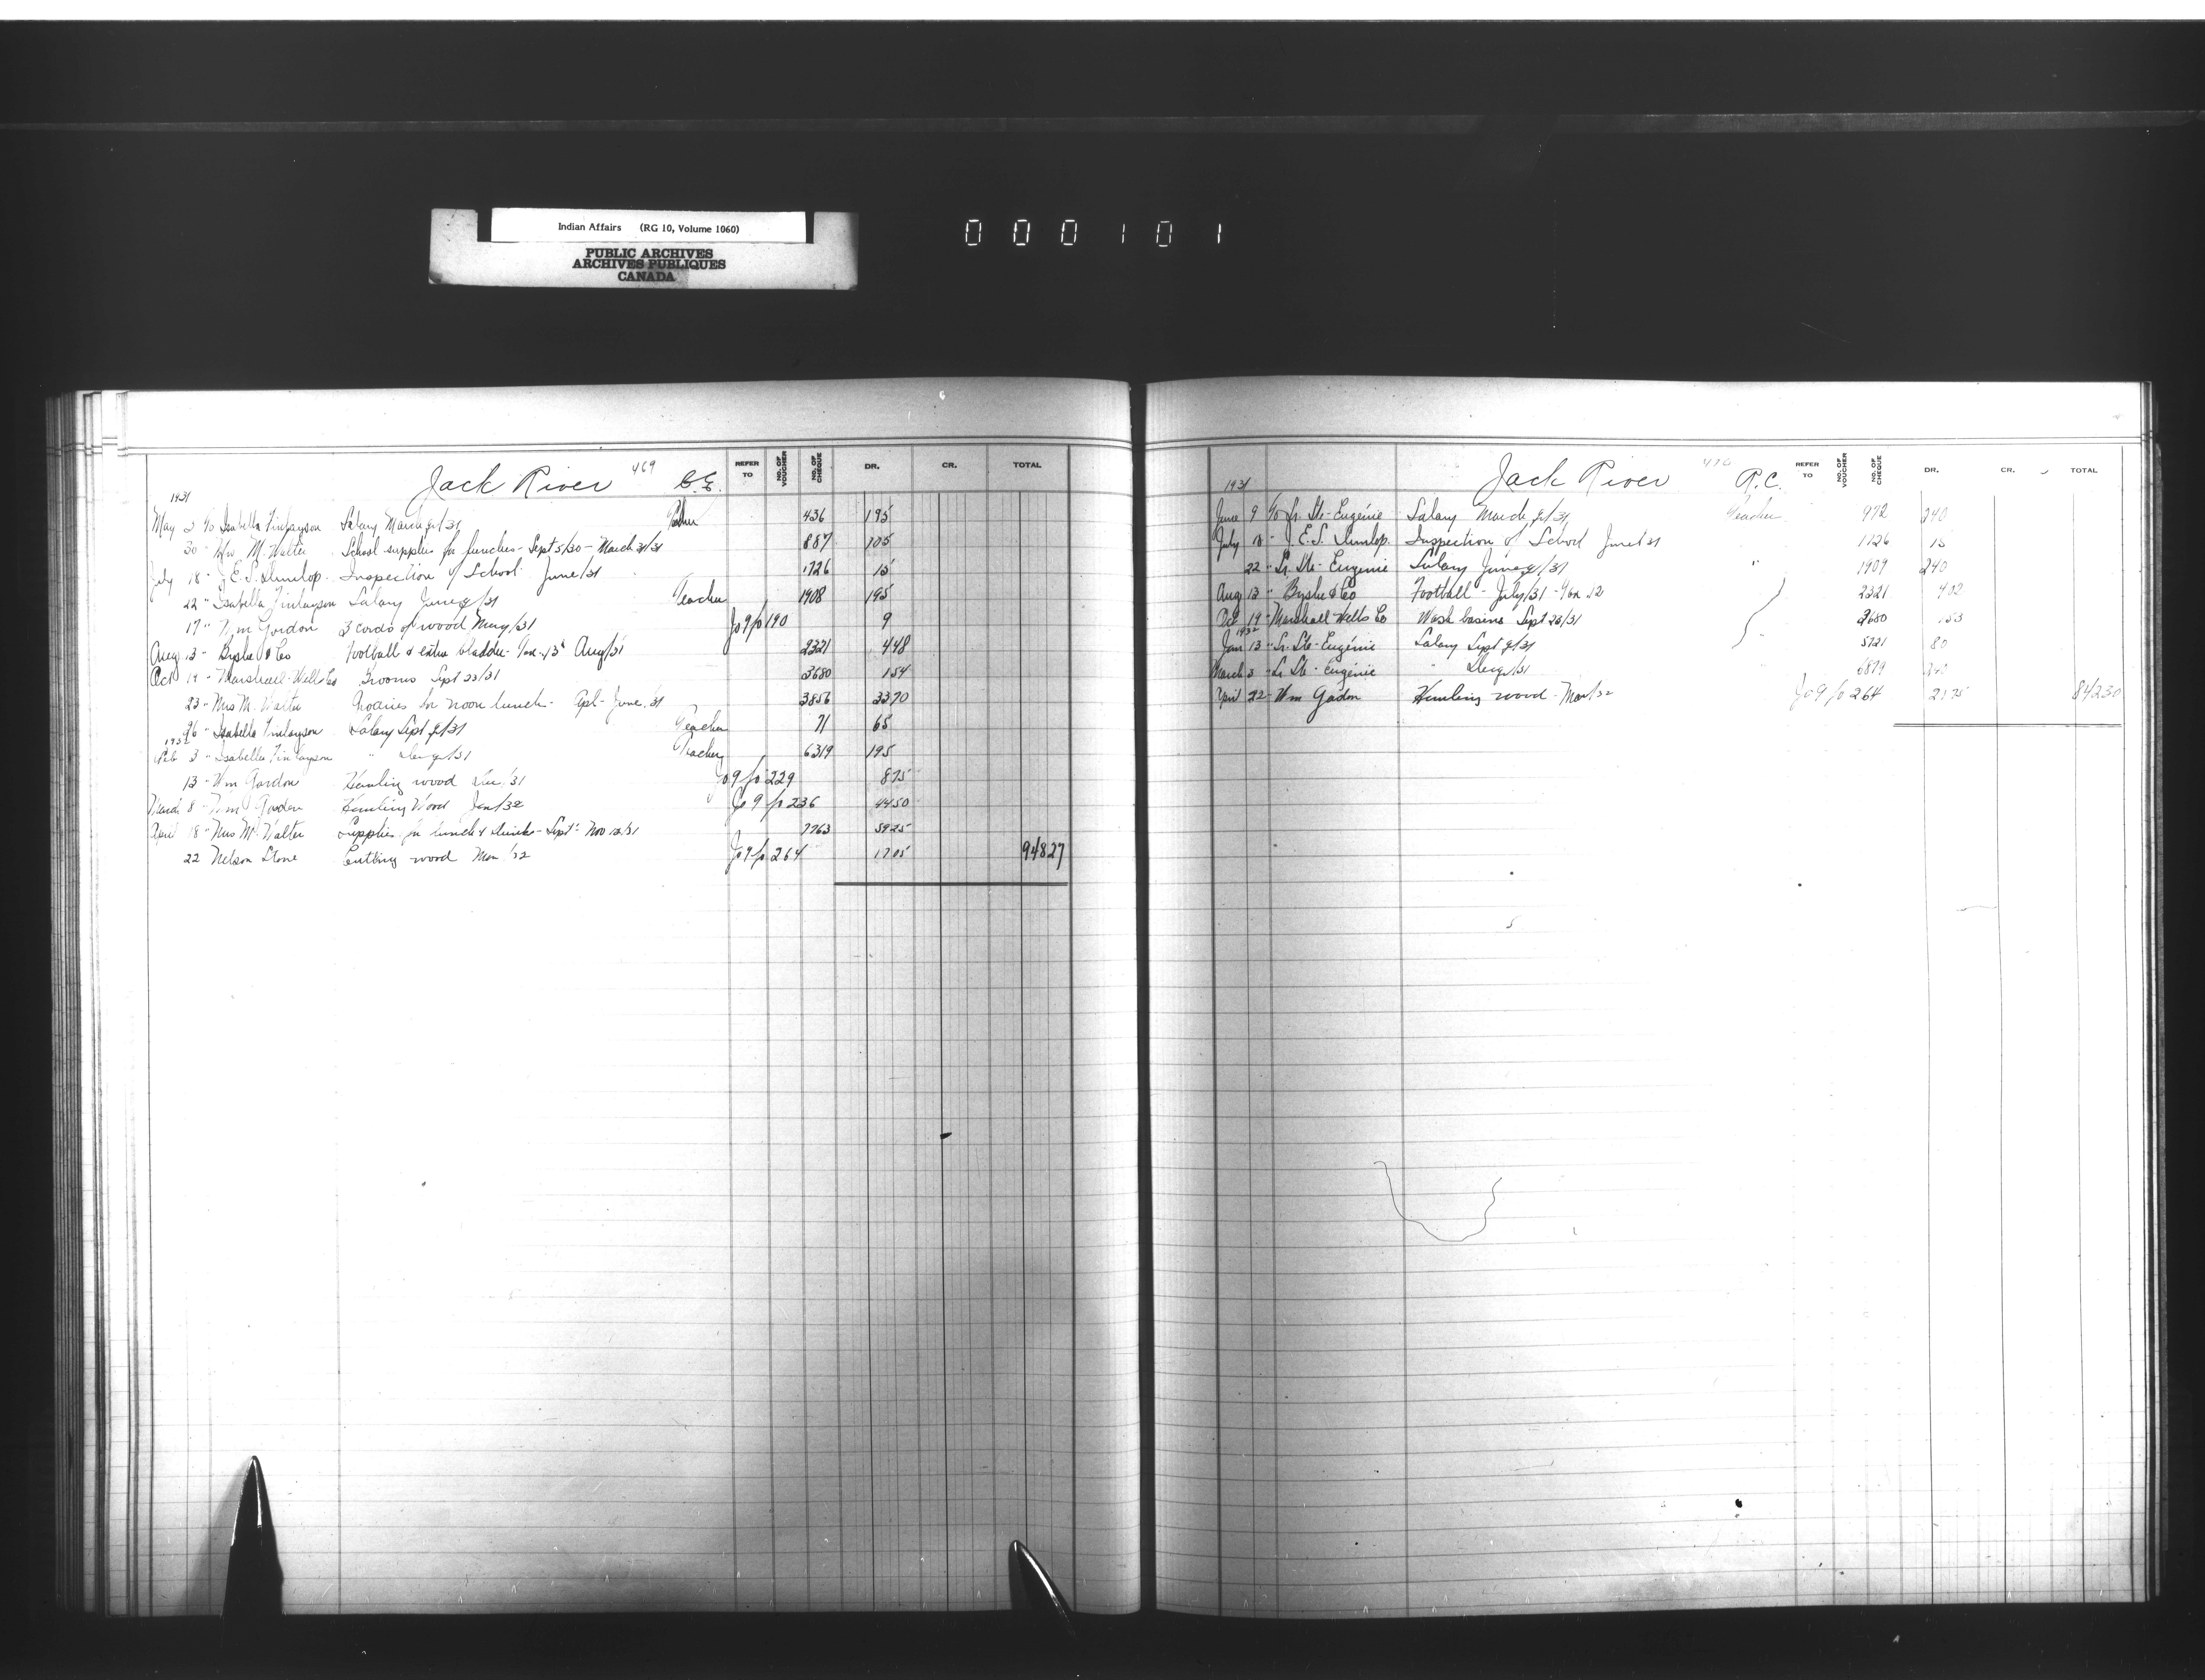 Indian Affairs (RG 10, Volume 1060)
PUBLIC ARCHIVES
ARCHIVES PUBLIQUES
CANADA
000101
Jack River 469 C.E. REFER TO NO. OF VOUCHER NO. OF CHEQUE DR. CR. TOTAL
1931
May 2 To Isabella Finlayson Salary March qr/31 Teacher 436 195
30 " M. Walter School supplies for lunches - Sept 5/30 - March 31/31 887 105
July 18 " J.E.S. Dunlop Inspection of School June/31 1726 15
22 " Isabella Finlayson Salary June qr/31 Teacher 1908 195
17 " Wm Gordon 3 cords of wood May/31 Jo 9 fo 190 9
Aug 13 " Byshe & Co Football & extra bladder - Aug/31 2321 448
Oct 19 " Marshall-Wells Co Brooms Sept 23/31 3680 154
23 " Mrs M. Walter for noon lunch - Apl - June/31 3856 3370
26 " Isabella Finlayson Salary Sept qr/31 Teacher 71 65
1932
Feb 3 " Isabella Finlayson " Dec qr/31 Teacher 6319 195
13 " Wm Gordon Hauling wood Dec/31 Jo 9 fo 229 875
March 8 " Wm Gordon Hauling Wood Jan/32 Jo 9 fo 236 4450
April 18 " Mrs M. Walter Supplies for lunch & drinks - Sept - Nov 12/31 7763 5925
22 Nelson Stone Cutting wood Mar/32 Jo 9 fo 264 1705 94827
Jack River 470 R.C. REFER TO NO. OF VOUCHER NO. OF CHEQUE DR. CR. TOTAL
1931
June 9 To Sr. Ste-Eugénie Salary March qr/31 Teacher 972 240
July 18 " J.E.S. Dunlop. Inspection of School June/31 1726 15
22 " Sr. Ste-Eugénie Salary June qr/31 " 1909 240
Aug 13 " Byshe & Co Football - July/31 2321 402
Oct 19 " Marshall Wells Co Wash basins Sept 23/31 3680 153
1932
Jan 13 " Sr. Ste-Eugénie Salary Sept qr/31 " 5721 80
March 3 " Sr. Ste-Eugénie " Dec qr/31 " 240
April 22 " Wm Gordon Hauling wood - Mar/32 Jo 9 fo 264 2175 84230